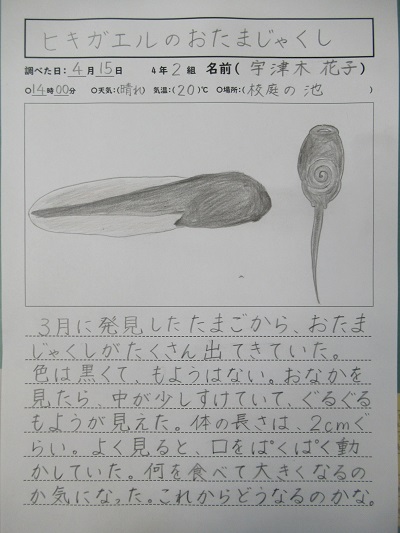 ヒキガエルのおたまじゃくし
調べた日：4月15日　4年2組　名前(宇津木 花子)
○14時00分　○天気：(晴れ)　気温：(20)℃　○場所：(校庭の池)
3月に発見したたまごから、おたま
じゃくしがたくさん出てきていた。
色は黒くて、もようはない。おなかを
見たら、中が少しすけていて、ぐるぐる
もようが見えた。体の長さは、2cmぐ
らい。よく見ると、口をぱくぱく動
かしていた。何を食べて大きくなるの
か気になった。これからどうなるのかな。